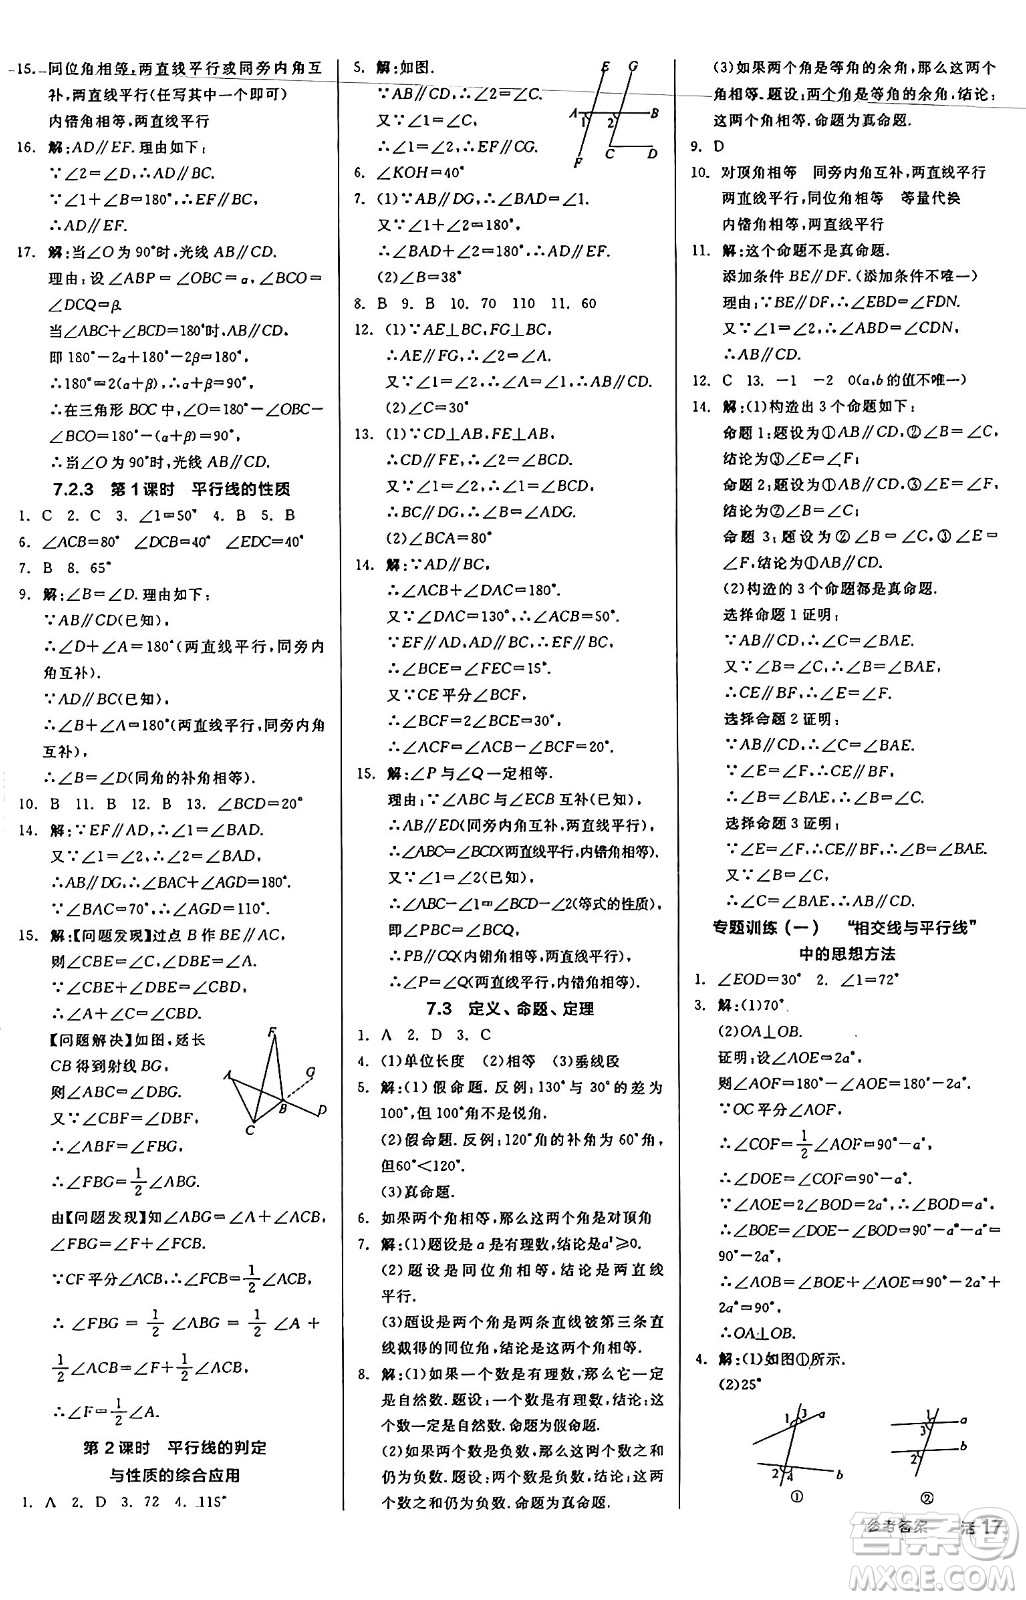 15. 同位角相等,两直线平行或同旁内角互
补,两直线平行(任写其中一个即可)
内错角相等,两直线平行
16. 解:AD∥EF.理由如下:
∵∠2=∠D,∴AD∥BC.
∵∠1+∠B=180°,∴EF∥BC.
∴AD∥EF.
17. 解:当∠O为90°时,光线AB∥CD.
理由:设∠ABP=∠OBC=α,∠BCO=
∠DCQ=β.
当∠ABC+∠BCD=180°时,AB∥CD.
即180°-2α+180°-2β=180°,
∴180°=2(α+β),∴α+β=90°.
∴在三角形BOC中,∠O=180°-∠OBC-
∠BCO=180°-(α+β)=90°.
∴当∠O为90°时,光线AB∥CD.
7.2.3 第1课时 平行线的性质
1. C 2. C 3. ∠1=50° 4. B 5. B
6. ∠ACB=80° ∠DCB=40° ∠EDC=40°
7. B 8. 65°
9. 解:∠B=∠D.理由如下:
∵AB∥CD(已知),
∴∠D+∠A=180°(两直线平行,同旁内
角互补).
∵AD∥BC(已知),
∴∠B+∠A=180°(两直线平行,同旁内角
互补),
∴∠B=∠D(同角的补角相等).
10. B 11. B 12. B 13. ∠BCD=20°
14. 解:∵EF∥AD,∴∠2=∠BAD.
又∵∠1=∠2,∴∠1=∠BAD,
∴AB∥DG,∴∠BAC+∠AGD=180°.
∵∠BAC=70°,∴∠AGD=110°.
15. 解:【问题发现】过点B作BE∥AC,
则∠CBE=∠C,∠DBE=∠A.
∵∠CBE+∠DBE=∠CBD,
∴∠A+∠C=∠CBD.
【问题解决】如图,延长
CB得到射线BG,
则∠ABF=∠ABG+∠FBG.
又∵∠CBF=∠DBF,
∴∠ABF=∠FBG.
∴∠FBG=1/2∠ABG.
由【问题发现】知∠ABG=∠A+∠ACB,
∠FBG=∠F+∠FCB.
∵CF平分∠ACB,∴∠FCB=1/2∠ACB,
∴∠FBG=1/2∠ABG=1/2∠A+
1/2∠ACB=∠F+1/2∠ACB,
∴∠F=1/2∠A.
第2课时 平行线的判定
与性质的综合应用
1. A 2. D 3. 72 4. 115°
5. 解:如图.
∵AB∥CD,∴∠2=∠C.
又∵∠1=∠C,
∴∠1=∠2,∴CG∥EF.
6. ∠KOH=40°
7. (1)∵AB∥DG,∴∠BAD=∠1.
又∵∠1+∠2=180°,
∴∠BAD+∠2=180°,∴AD∥EF.
(2)∠B=38°
8. B 9. B 10. 70 110 11. 60
12. (1)∵AE⊥BC,FG⊥BC,
∴AE∥FG,∴∠2=∠A.
又∵∠1=∠2,∴∠1=∠A,∴AB∥CD.
(2)∠C=30°
13. (1)∵CD⊥AB,EF⊥AB,
∴CD∥EF,∴∠2=∠BCD.
又∵∠1=∠2,∴∠1=∠BCD,
∴BC∥DG,∴∠B=∠ADG.
(2)∠BCA=80°
14. 解:∵AD∥BC,
∴∠ACB+∠DAC=180°.
又∵∠DAC=130°,∴∠ACB=50°.
∵EF∥AD,AD∥BC,∴EF∥BC,
∴∠BCE=∠FEC=15°.
又∵CE平分∠BCF,
∴∠BCF=2∠BCE=30°,
∴∠ACF=∠ACB-∠BCF=20°.
15. 解:∠P与∠Q一定相等.
理由:∵∠ABC与∠ECB互补(已知),
∴AB∥ED(同旁内角互补,两直线平行),
∴∠ABC=∠BCD(两直线平行,内错角相等).
又∵∠1=∠2(已知),
∴∠ABC-∠1=∠BCD-∠2(等式的性质),
即∠PBC=∠QCB,
∴PB∥CQ(内错角相等,两直线平行),
∴∠P=∠Q(两直线平行,内错角相等).
7.3 定义、命题、定理
1. A 2. D 3. C
4. (1)单位长度 (2)相等 (3)垂线段
5. 解:(1)假命题.反例:130°与30°的差为
100°,但100°角不是锐角.
(2)假命题.反例:120°角的补角为60°角,
但60°<120°.
(3)真命题.
6. 如果两个角相等,那么这两个角是对顶角
7. 解:(1)题设是a是有理数,结论是a²≥0.
(2)题设是同位角相等,结论是两直线
平行.
(3)题设是两个角是两条直线被第三条直
线截得的同位角,结论是这两个角相等.
8. 解:(1)如果一个数是有理数,那么这个数
是自然数.题设:一个数是有理数,结论:这
个数一定是自然数.命题为假命题.
(2)如果两个数为负数,那么这两个数之和
仍为负数.题设:两个数为负数,结论:这两
个数之和仍为负数.命题为真命题.
(3)如果两个角是等角的余角,那么这两个
角相等.题设:两个角是等角的余角,结论:
这两个角相等.命题为真命题.
9. D
10. 对顶角相等 同旁内角互补,两直线平行
两直线平行,同位角相等 等量代换
内错角相等,两直线平行
11. 解:这个命题不是真命题.
添加条件BE∥DF.(添加条件不唯一)
理由:∵BE∥DF,∴∠EBD=∠FDN.
又∵∠1=∠2,∴∠ABD=∠CDN,
∴AB∥CD.
12. C 13. -1 -2 0(a,b的值不唯一)
14. 解:(1)构造出3个命题如下:
命题1:题设为①AB∥CD,②∠B=∠C,
结论为③∠E=∠F;
命题2:题设为①AB∥CD,③∠E=∠F,
结论为②∠B=∠C;
命题3:题设为②∠B=∠C,③∠E=
∠F,结论为①AB∥CD.
(2)构造的3个命题都是真命题.
选择命题1证明:
∵AB∥CD,∴∠C=∠BAE.
又∵∠B=∠C,∴∠B=∠BAE,
∴CE∥BF,∴∠E=∠F.
选择命题2证明:
∵AB∥CD,∴∠C=∠BAE.
∵∠E=∠F,∴CE∥BF,
∴∠B=∠BAE,∴∠B=∠C.
选择命题3证明:
∵∠E=∠F,∴CE∥BF,∴∠B=∠BAE.
又∵∠B=∠C,
∴∠C=∠BAE,∴AB∥CD.
专题训练(一) “相交线与平行线”
中的思想方法
1. ∠EOD=30° 2. ∠1=72°
3. 解:(1)70°
(2)OA⊥OB.
证明:设∠AOE=2α°,
则∠AOF=180°-∠AOE=180°-2α°.
∵OC平分∠AOF,
∴∠COF=1/2∠AOF=90°-α°,
∴∠DOE=∠COF=90°-α°.
∵∠AOE=2∠BOD=2α°,∴∠BOD=α°,
∴∠BOE=∠DOE-∠BOD=90°-α°-α°=
90°-2α°,
∴∠AOB=∠BOE+∠AOE=90°-2α°+
2α°=90°,
∴OA⊥OB.
4. 解:(1)如图①所示.
(2)25°
① ②
参考答案 活17
答案圈
MXQE.COM